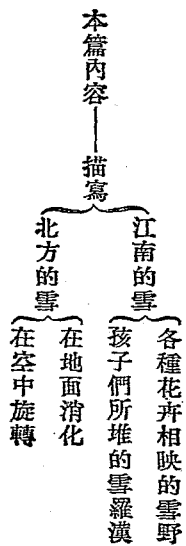 本篇內容——描寫
江南的雪
各種花卉相映的雪野
孩子們所堆的雪羅漢
北方的雪
在地面消化
在空中旋轉